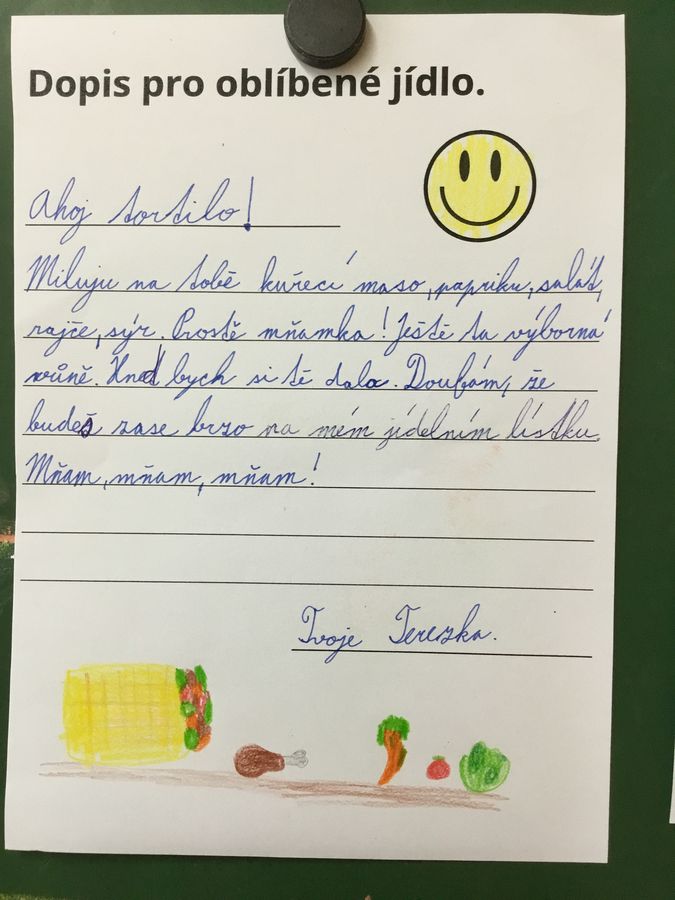 Dopis pro oblíbené jídlo.
Ahoj tortilo!
Miluju na tobě kuřecí maso, papriku, salát,
rajče, sýr. Prostě mňamka! Ještě ta výborná
vůně. Hned bych si tě dala. Doufám, že
budeš zase brzo na mém jídelním lístku.
Mňam, mňam, mňam!
Tvoje Terezka.